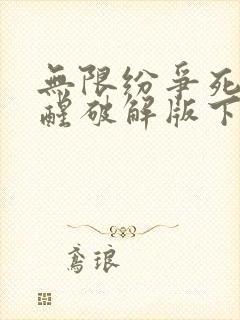 無限纷爭死
醒破解版下
鸢琅